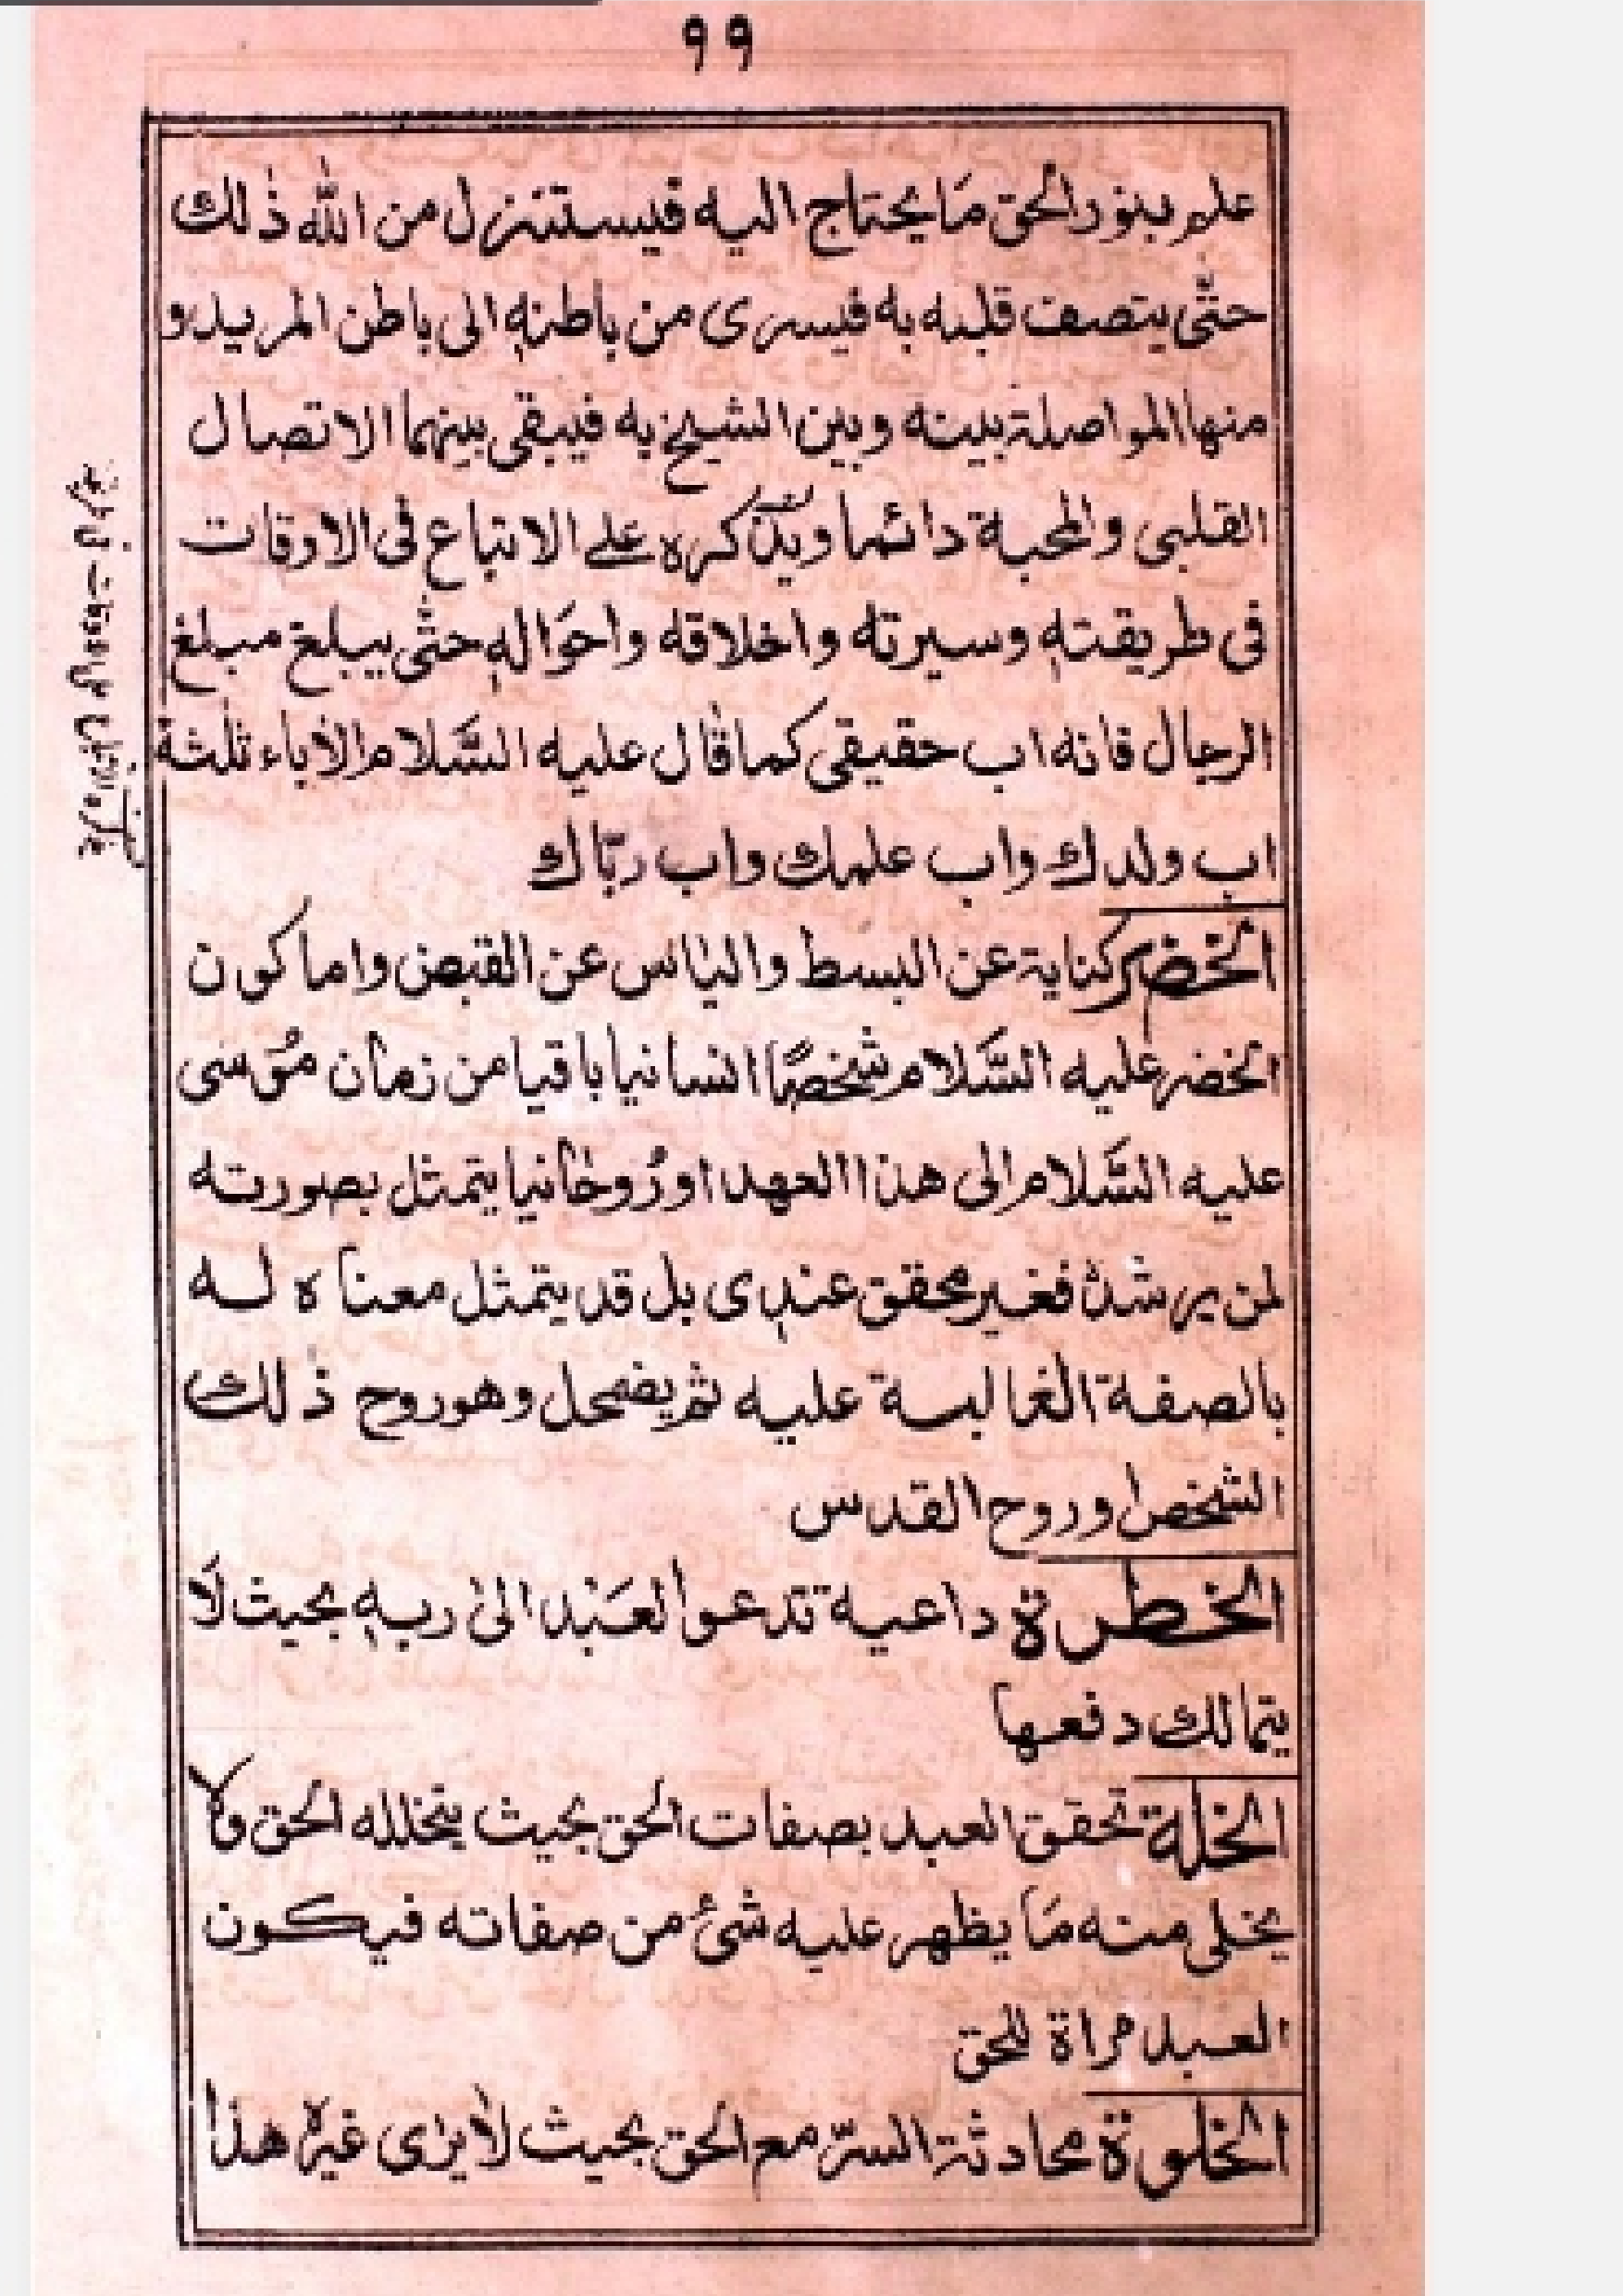 ۹۹
علم بنور الحق مَا يحتاج اليه فيستنزل من الله ذٰلك
حتّٰى يتصف قلبه به فيسرى من باطنهٖ الى باطن المريد و
منها المواصلة بينه وبين الشيخ به فيبقى بينهما الاتصال
القلبى والمحبة دائما ويذّكره على الاتباع فى الاوقات
فى طريقتهٖ وسيرته واخلاقه واحَوالهٖ حتّٰى يبلغ مبلغ
الرجال فانه اب حقيقى كما قال عليه السَّلام الأباء ثلٰثة
اب ولدك واب علمك واب ربّاك
الخضر كناية عن البسط والياس عن القبض واما كون
الخضر عليه السَّلام شخصًا انسانيا باقيا من زمان مُوسى
عليه السَّلام الى هذا العهد او رُوحانيا يتمثل بصورته
لمن يرشدہ فغير محقق عندى بل قد يتمثل معناه له
بالصفة الغالبة عليه ثم يضمحل وهو روح ذٰلك
الشخص او روح القدس
الخطرة داعية تدعوا العَبْد الىٰ ربهٖ بحيث لَا
يتمالك دفعها
الخلة تحقق العبد بصفات الحق بحيث يتخلله الحق ولا
يخلى منه مَا يظهر عليه شئ من صفاته فيكون
العبد مراة للحق
الخلوة محادثة السرّ مع الحق بحيث لا يرٰى غيره هذا